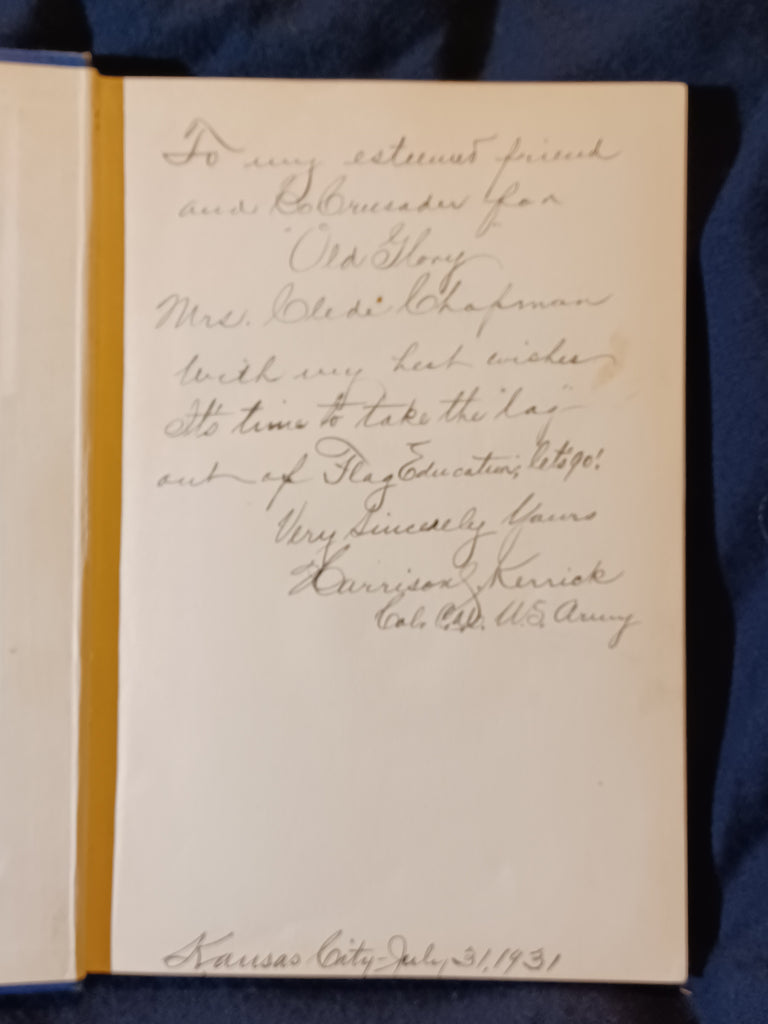 To my esteemed friend
and Co Crusader for
"Old Glory
Mrs. Clede Chapman
With my best wishes
It's time to take the "lag"
out of Flag Education; let's go!
Very Sincerely Yours
Harrison S. Kerrick
Col. C.A.C. U.S. Army
Kansas City - July 31, 1931